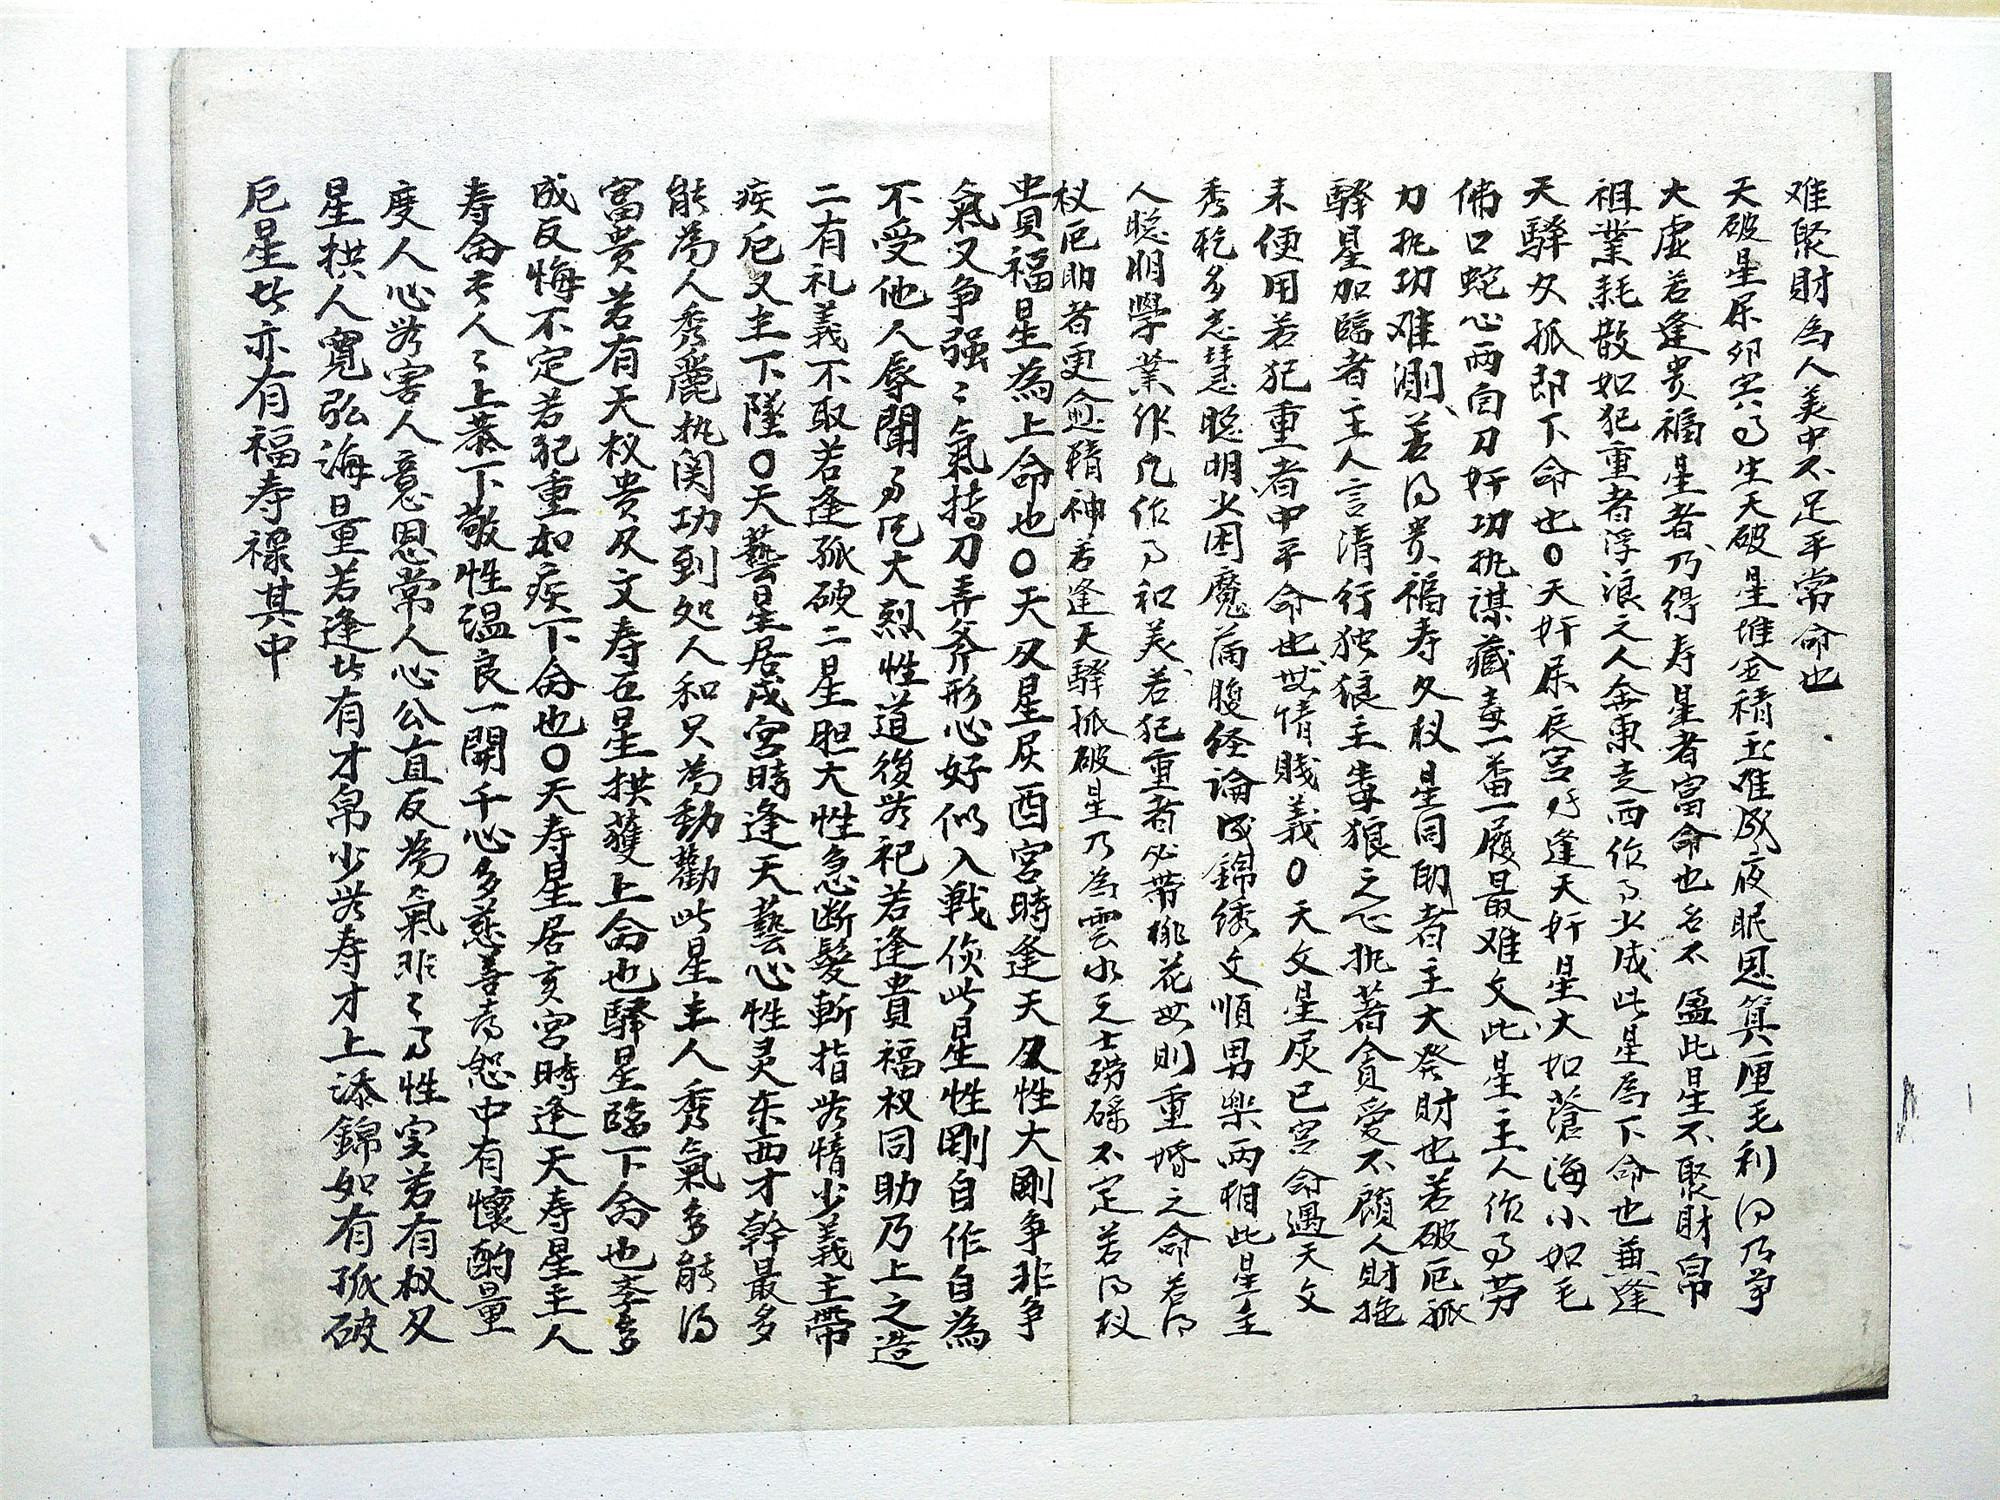 难聚財為人美中不足平常命也
天破星居卯宮生天破星堆金積玉难成夜眠思算厘毛利得乃争
大虚若逢贵福星者乃得寿星者富命也名不盈此星不聚財帛
祖業耗散如犯重者浮浪之人奔東走西作事少成此星為下命也兼逢
天驛及孤即下命也〇天奸居辰宮時逢天奸星大如蒼海小如毛
佛口蛇心两面刀奸功执謀藏毒一番一履最难文此星主人作事劳
力执功难測若得贵福寿文权星同助者主大発財也若破厄孤
驛星加臨者主人言清行独狼主毒狼之心执著貪爱不顾人財拖
来便用若犯重者中平命也世情賤義〇天文星居巳宮命遇天文
秀乾多志慧聡明火困魔滿腹经論成錦绣文順男楽两相此星主
人聡明學業作凡作事和美若犯重者必带桃花女則重婚之命若得
权厄助者更愈精神若逢天驛孤破星乃為雲水之士碌不定若得权
貴福星為上命也〇天刃星居酉宮時逢天刃性大剛争非争
氣又争强〻氣持刀弄斧形心好似入戦侦此星性剛自作自為
不受他人辱聞事凡大烈性道後皆祀若逢貴福权同助乃上之造
二有礼義不取若逢孤破二星胆大性急断髪斬指皆情少義主帶
疾厄又主下墜〇天藝星居戌宮時逢天藝心性灵东西才幹最多
能為人秀麗执関功到处人和只為動勸此星主人秀氣多能得
富贵若有天权贵及文寿五星拱護上命也驛星臨下命也李多
成反悔不定若犯重如疾下命也〇天寿星居亥宮時逢天寿星主人
寿命长人〻上恭下敬性温良一開千心多慈善喜怒中有懷酌量
度人心皆害人意恩常人心公直反為氣非〻事性实若有权刃
星拱人寬弘海量若逢此有才帛少皆寿才上添錦如有孤破
厄星此亦有福寿祿其中